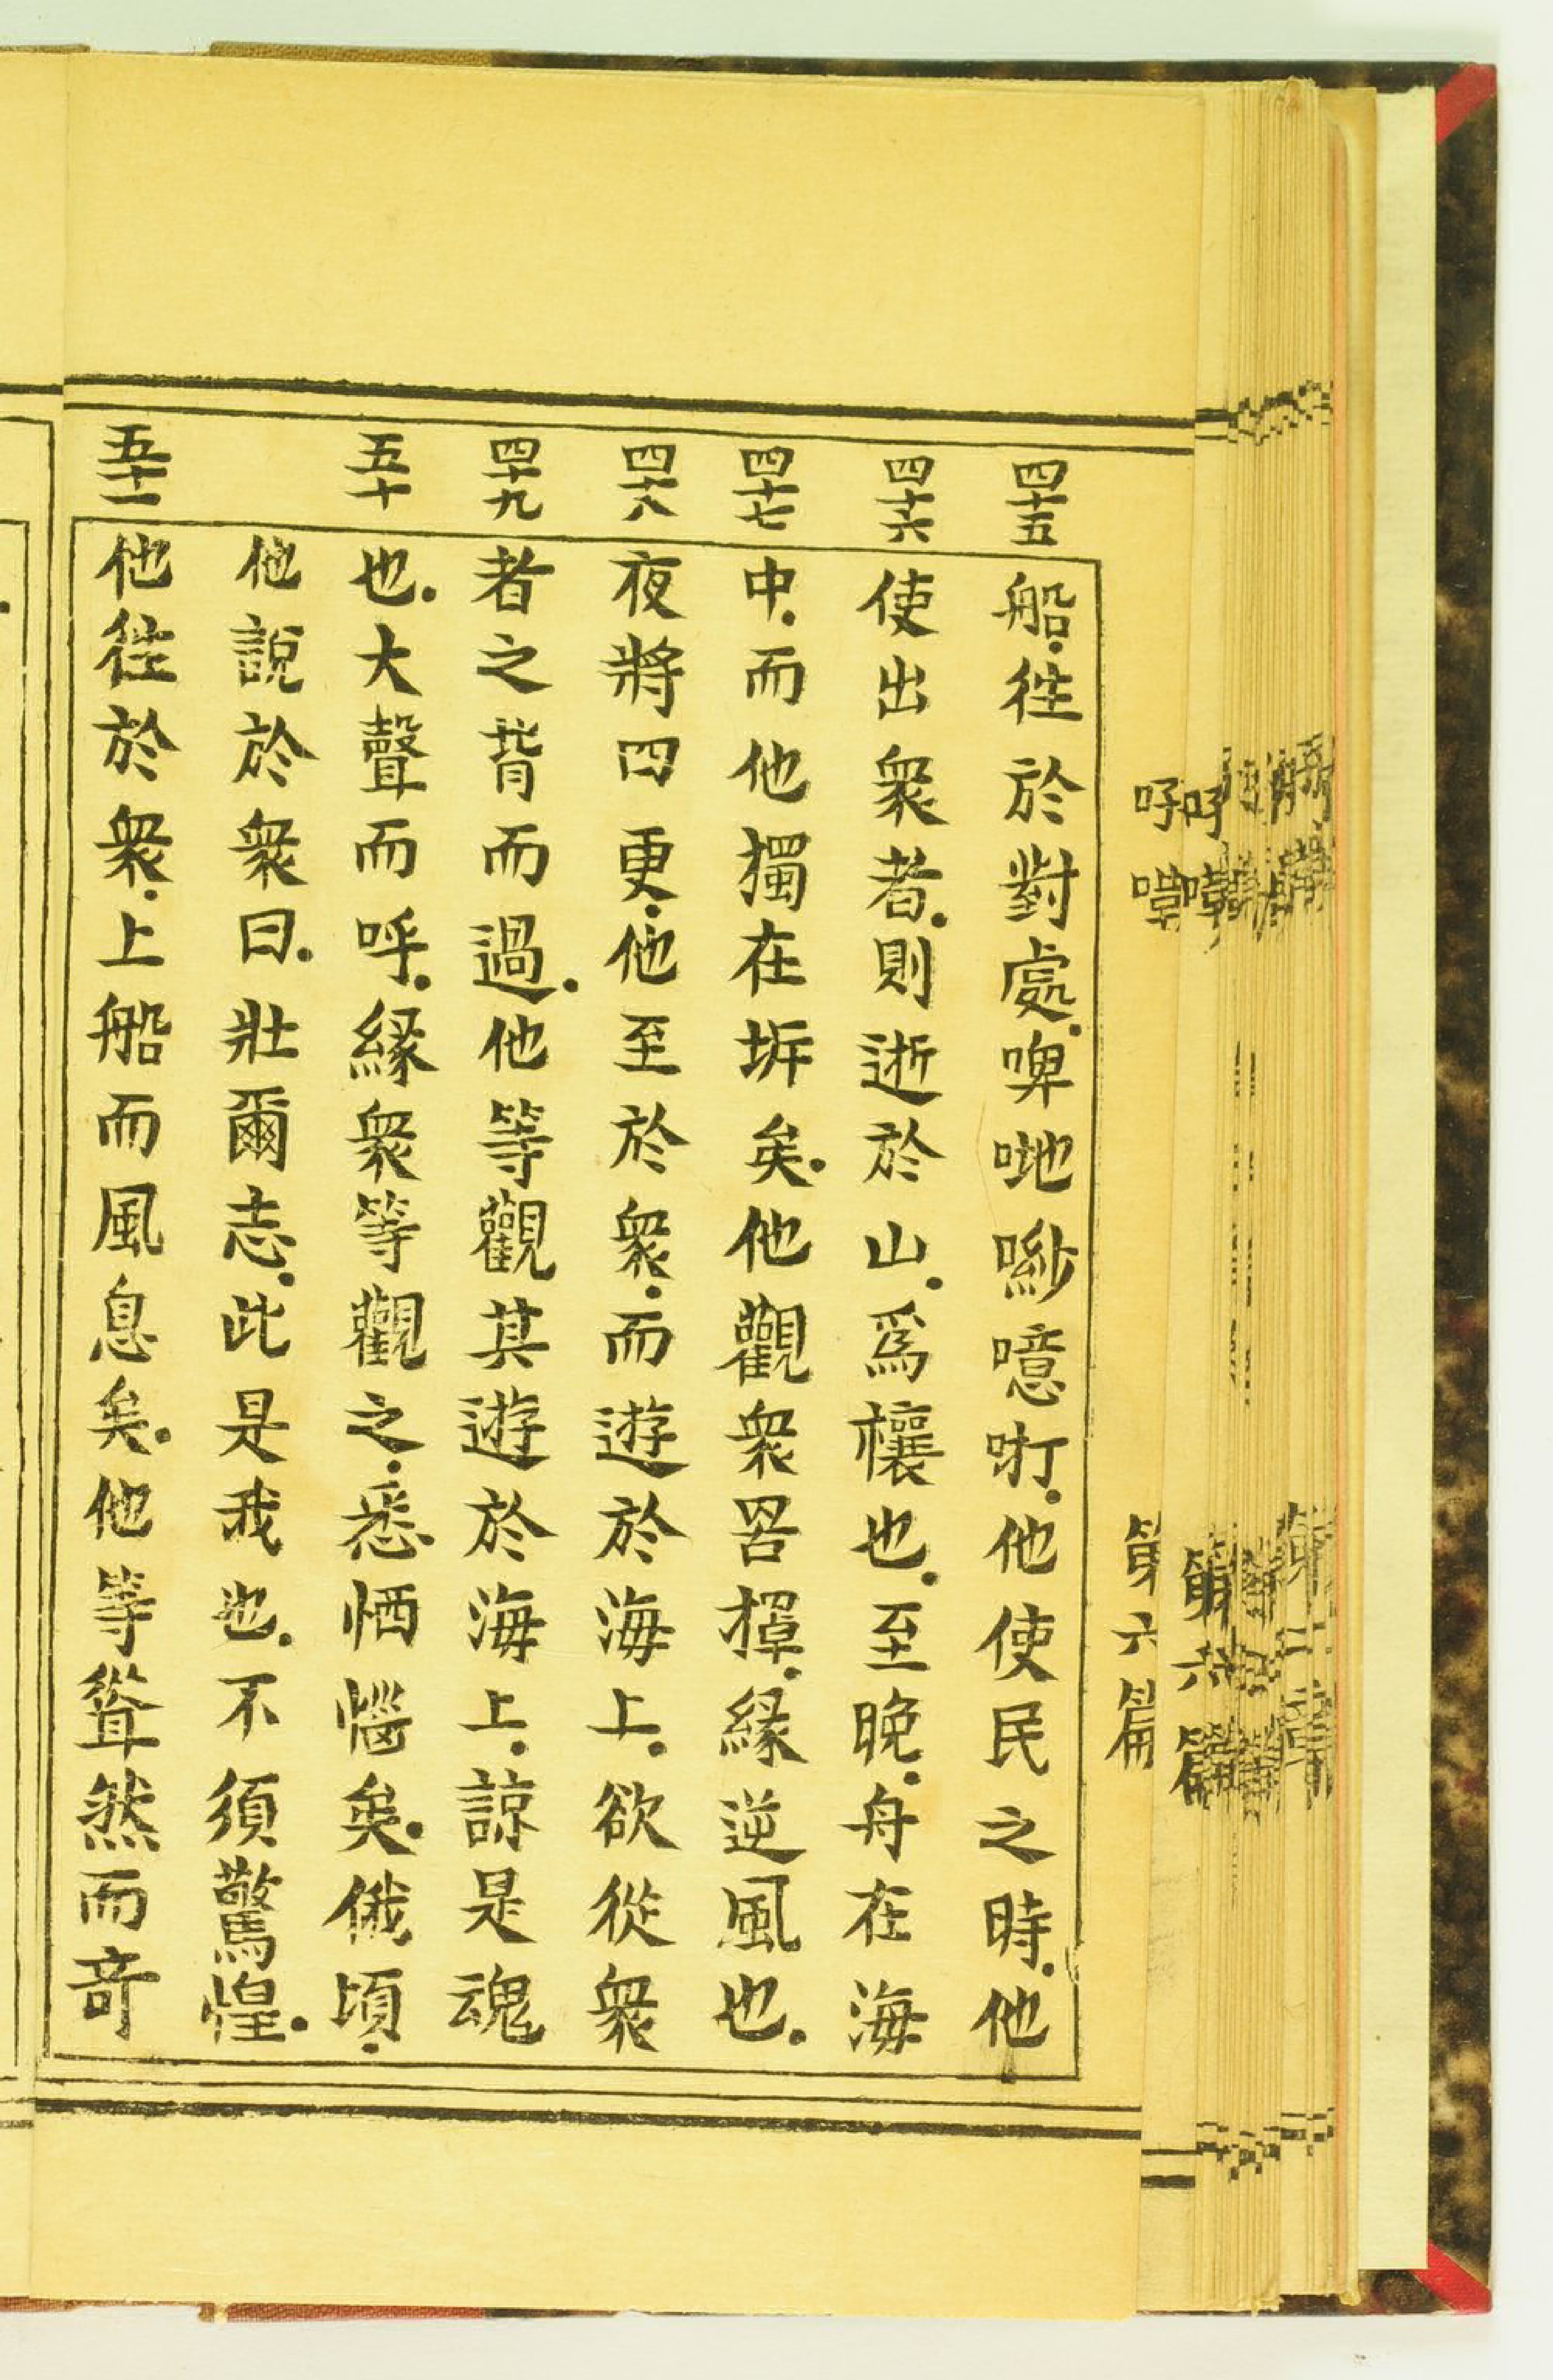 四十五
船.徃於對處.啤哋唦噫㗁.他使民之時.他
四十六
使出衆者.則逝於山.爲禳也.至晚.舟在海
四十七
中.而他獨在坼矣.他觀衆罟撑.緣逆風也.
四十八
夜將四更.他至於衆.而遊於海上.欲從衆
四十九
者之背而過.他等觀其遊於海上.諒是魂
五十
也.大聲而呼.緣衆等觀之.悉恓惱矣.俄頃.
他說於衆曰.壯爾志.此是我也.不須驚惶.
五十一
他徃於衆.上船而風息矣.他等聳然而竒
第六篇